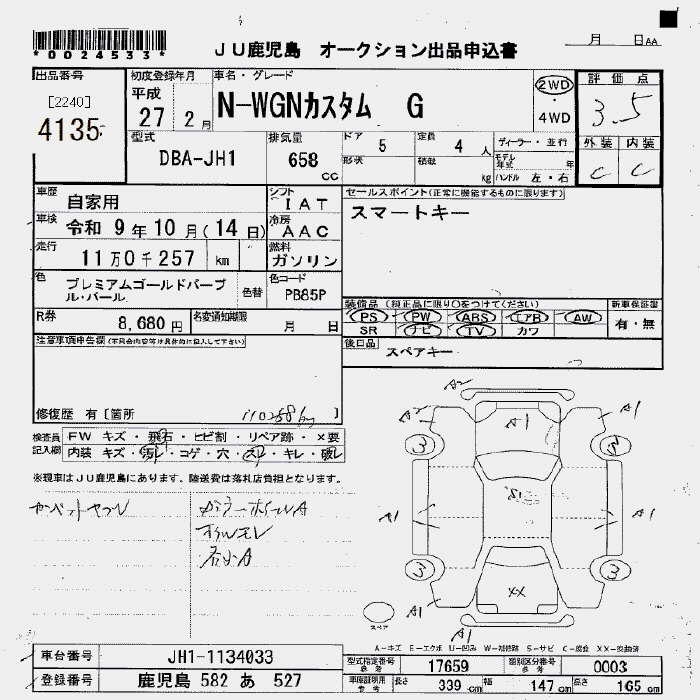 *0024533*
JU鹿児島 オークション出品申込書
月 日 AA
出品番号
[2240]
4135
初度登録年月
平成
27 2月
車名・グレード
N-WGNカスタム G
2WD
・
4WD
評価点
3.5
外装 内装
C C
型式
DBA-JH1
排気量
658
cc
ドア 5
定員 4 人
ディーラー・並行
形状
積載 kg
モデル年式 年
ハンドル 左・右
車歴 自家用
シフト IAT
車検 令和 9年 10月(14日)
冷房 AAC
走行 11万0千257 km
燃料 ガソリン
色 プレミアムゴールドパープル・パール
色替
色コード PB85P
R券 8,680円
名変通知期限 月 日
セールスポイント(正常に機能するものに限ります)
スマートキー
装備品(純正品に限り○をつけてください)
新車保証書
PS PW ABS エアB AW
SR ナビ TV カワ
有・無
後日品 スペアキー
注意事項申告欄(不具合内容等は具体的に記入して下さい)
修復歴 有[箇所 110258km ]
検査員
記入欄
FW キズ・飛石・ヒビ割・リペア跡・×要
内装 キズ・汚レ・コゲ・穴・スレ・キレ・破レ
※現車はJU鹿児島にあります、陸送費は落札店負担となります。
A2
A2
A1
A1
3
3
A1
A1
3
3
XX
A1
スペア
A-キズ E-エクボ U-凹み W-補修跡 S-サビ C-腐食 XX-交換済
車台番号 JH1-1134033
登録番号 鹿児島 582 あ 527
型式指定番号 参考 17659
類別区分番号 参考 0003
車庫証明用 参考
長さ 339 cm
幅 147 cm
高さ 165 cm